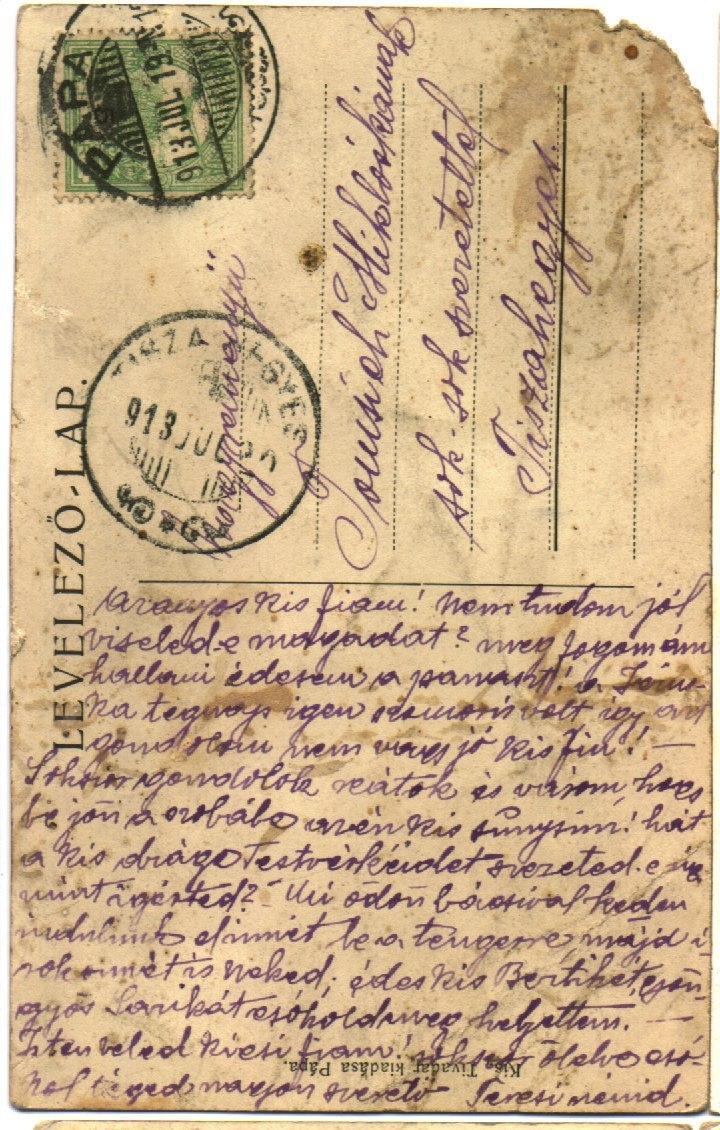 LEVELEZŐ-LAP.
PÁPA
913 JUL 19
TISZAHEGYES
913 JUL
nagyreményű
Tomsich Miklóskának
sok-sok szeretettel
Tiszahegyes.
Aranyos kis fiam! nem tudom jól
viseled-e magadat? meg fogom ám
hallani édesem a panaszt! a
ka tegnap igen szomorú volt így azt
gondolom nem vagy jó kis fiú! —
Sokszor gondolok reátok és várom hogy
be jön a szobába az én kis hát
a kis drága Testvérkéidet szereted-e úgy
mint ígérted? Mi Ödön bácsival kedden
indulunk el ismét be a tengerre, majd í-
rok ismét is neked; édes kis Bertikét, gyön-
gyös Sarikát csókold meg helyettem. —
Isten veled kicsi fiam! sokszor ölelve csó-
kol téged nagyon szerető Teresi nénid.
Kis Tivadar kiadása Pápa